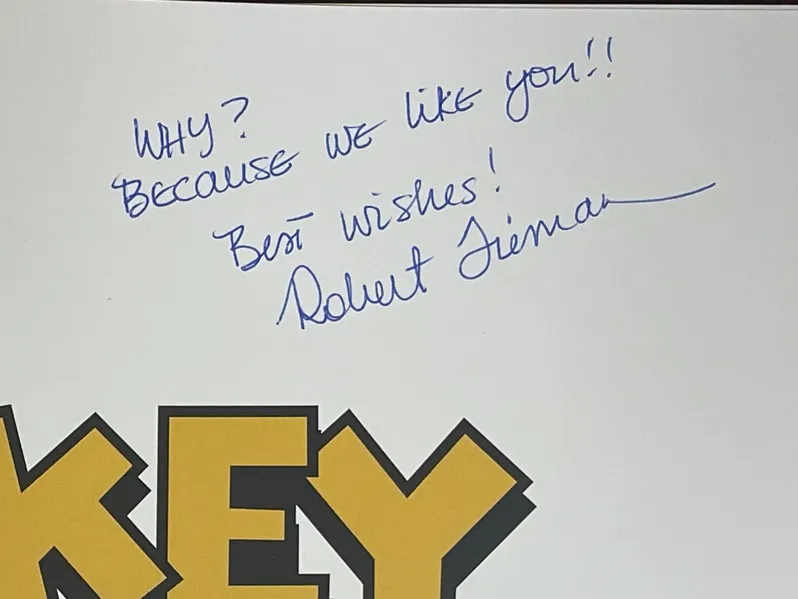 WHY?
BECAUSE WE LIKE YOU!!
Best wishes!
Robert Tieman
KEY